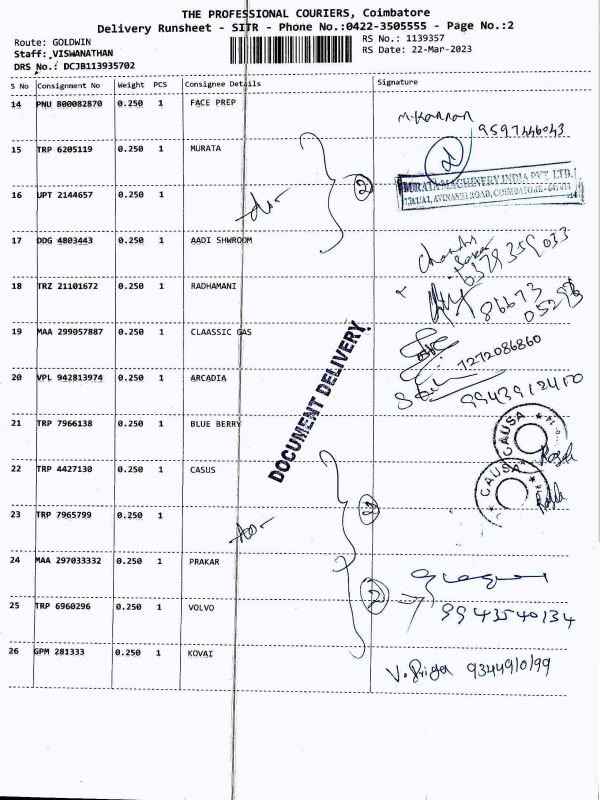 THE PROFESSIONAL COURIERS, Coimbatore
Delivery Runsheet - SITR - Phone No.:0422-3505555 - Page No.:2
Route: GOLDWIN RS No.: 1139357
Staff: VISWANATHAN RS Date: 22-Mar-2023
DRS No.: DCJB113935702
S No Consignment No Weight PCS Consignee Details Signature
14 PNU 800082870 0.250 1 FACE PREP
M.Kannan
9597446043
15 TRP 6205119 0.250 1 MURATA
2
MURATA MACHINERY INDIA PVT. LTD.
AVINASHI ROAD, COIMBATORE
16 UPT 2144657 0.250 1 -do- 2
17 DDG 4803443 0.250 1 AADI SHWROOM
6379359033
18 TRZ 21101672 0.250 1 RADHAMANI
86673
05293
19 MAA 299057887 0.250 1 CLAASSIC GAS
7272086860
20 VPL 942813974 0.250 1 ARCADIA
9943912410
DOCUMENT DELIVERY.
21 TRP 7966138 0.250 1 BLUE BERRY
CAUSA
22 TRP 4427130 0.250 1 CASUS
CAUSA
23 TRP 7965799 0.250 1 -do- 2
24 MAA 297033332 0.250 1 PRAKAR
25 TRP 6960296 0.250 1 VOLVO 2
9943540134
26 GPM 281333 0.250 1 KOVAI V. Priya 9344910199